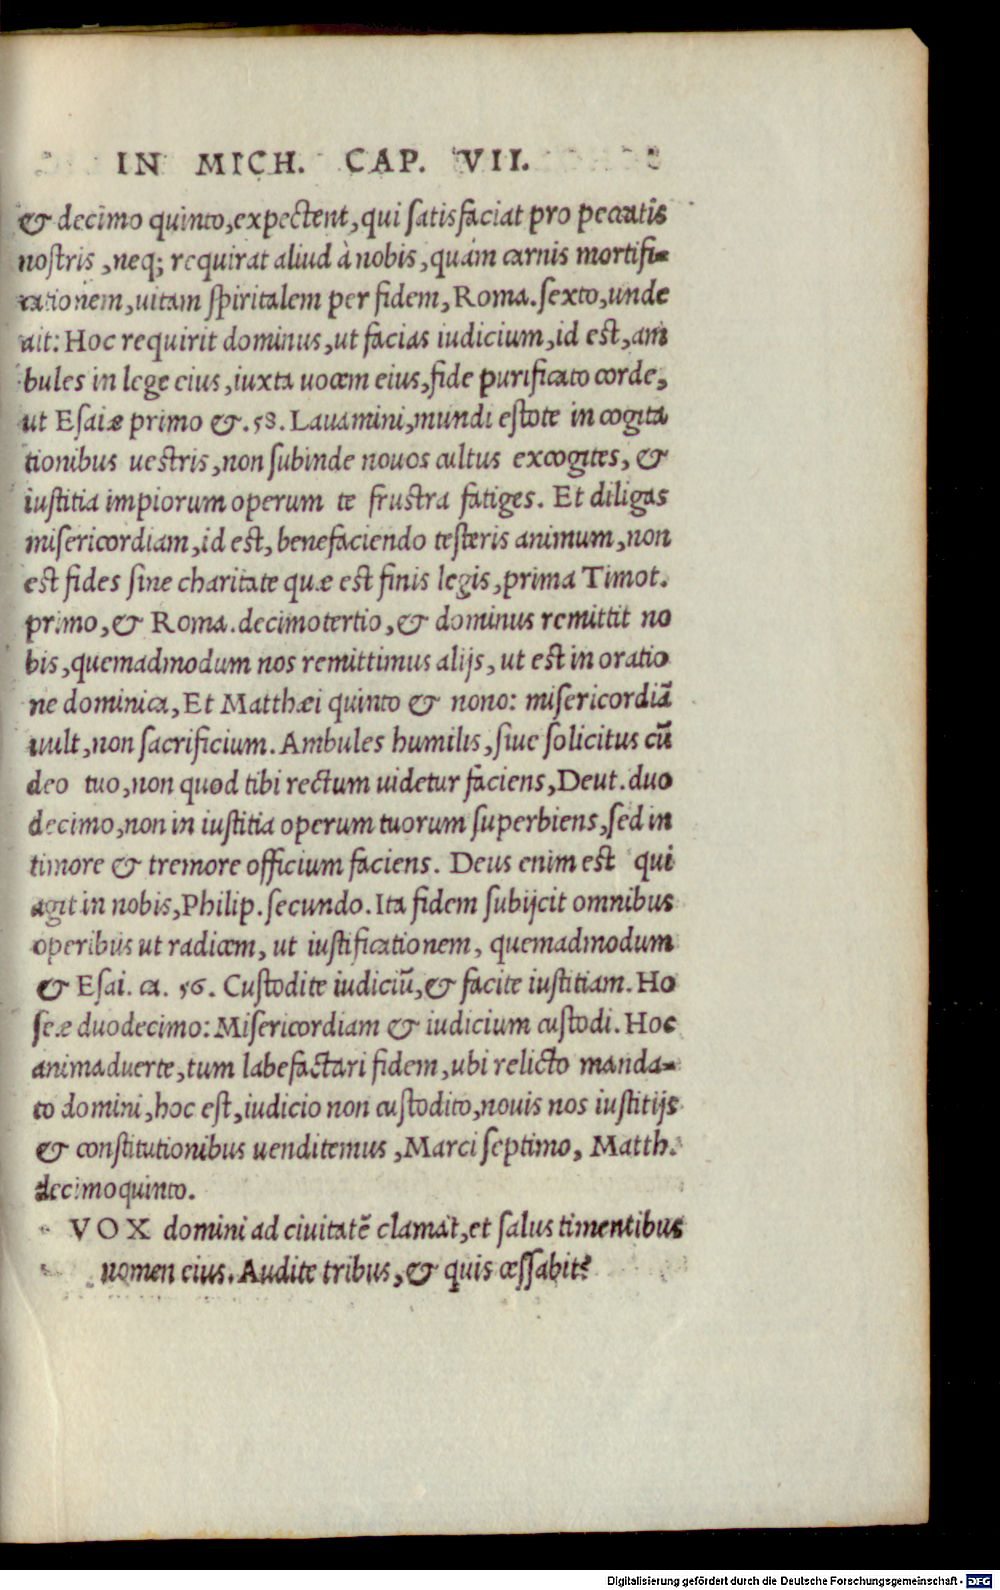 IN MICH. CAP. VII.
& decimo quinto,expectent,qui satisfaciat pro peccatis
nostris ,neq; requirat aliud à nobis ,quám carnis mortifi-
cationem,uitam spiritalem per fidem,Roma.sexto,unde
ait: Hoc requirit dominus,ut facias iudicium,id est,am
bules in lege eius ,iuxta uocem eius,fide purificato corde,
ut Esaiæ primo &.58. Lauamini,mundi estote in cogita
tionibus uestris,non subinde nouos cultus excogites, &
iustitia impiorum operum te frustra fatiges. Et diligas
misericordiam,id est, benefaciendo testeris animum,non
est fides sine charitate quæ est finis legis,prima Timot.
primo,& Roma.decimotertio,& dominus remittit no
bis,quemadmodum nos remittimus alijs, ut est in oratio
ne dominica, Et Matthæi quinto & nono: misericordiā
uult,non sacrificium. Ambules humilis,siue solicitus cū
deo tuo,non quod tibi rectum uidetur faciens,Deut.duo
decimo,non in iustitia operum tuorum superbiens,sed in
timore & tremore officium faciens. Deus enim est qui
agit in nobis,Philip.secundo.Ita fidem subijcit omnibus
operibus ut radicem, ut iustificationem, quemadmodum
& Esai. ca. 56. Custodite iudiciū,& facite iustitiam. Ho
seæ duodecimo: Misericordiam & iudicium custodi. Hoc
animaduerte,tum labefactari fidem,ubi relicto manda-
to domini,hoc est,iudicio non custodito,nouis nos iustitijs
& constitutionibus uenditemus ,Marci septimo, Matth.
decimoquinto.
VOX domini ad ciuitatē clamat,et salus timentibus
nomen eius. Audite tribus,& quis cessabit?
Digitalisierung gefördert durch die Deutsche Forschungsgemeinschaft - DFG